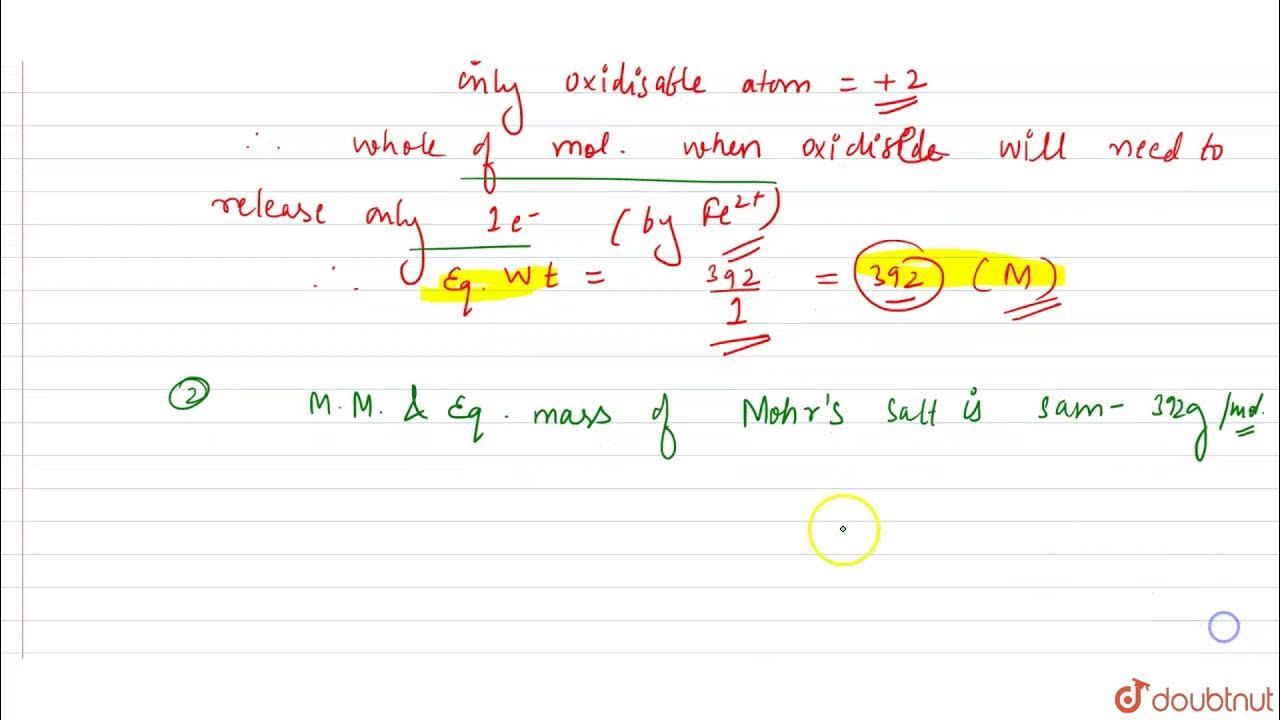 only oxidisable atom = +2
∴ whole of mol. when oxidise will need to
release only 1e⁻ (by Fe²⁺)
∴ Eq. Wt = 392/1 = 392 (M)
② M.M. & Eq. mass of Mohr's salt is sam- 392g/mol.
doubtnut